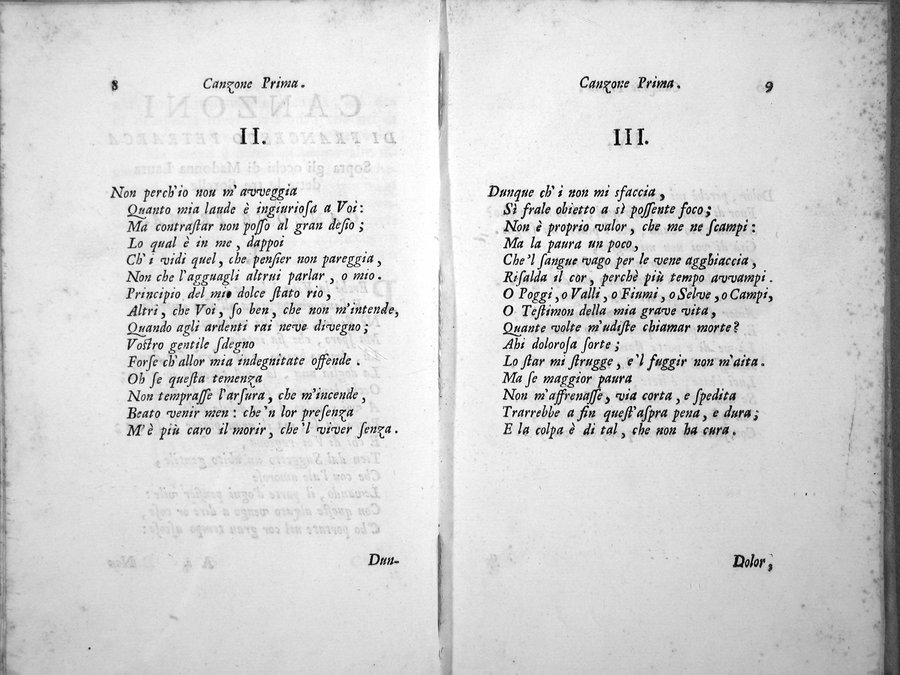 8 Canzone Prima.
II.
Non perch'io nou m'avveggia
Quanto mia laude è ingiuriosa a Voi:
Ma contrastar non posso al gran desio;
Lo qual è in me, dappoi
Ch'i vidi quel, che pensier non pareggia,
Non che l'agguagli altrui parlar, o mio.
Principio del mio dolce stato rio,
Altri, che Voi, so ben, che non m'intende,
Quando agli ardenti rai neve divegno;
Vostro gentile sdegno
Forse ch'allor mia indegnitate offende.
Oh se questa temenza
Non temprasse l'arsura, che m'incende,
Beato venir men: che'n lor presenza
M'è più caro il morir, che'l viver senza.
Dun-
Canzone Prima. 9
III.
Dunque ch'i non mi sfaccia,
Sì frale obietto a sì possente foco;
Non è proprio valor, che me ne scampi:
Ma la paura un poco,
Che'l sangue vago per le vene agghiaccia,
Risalda il cor, perchè più tempo avvampi.
O Poggi, o Valli, o Fiumi, o Selve, o Campi,
O Testimon della mia grave vita,
Quante volte m'udiste chiamar morte?
Ahi dolorosa sorte;
Lo star mi strugge, e'l fuggir non m'aita.
Ma se maggior paura
Non m'affrenasse, via corta, e spedita
Trarrebbe a fin quest'aspra pena, e dura;
E la colpa è di tal, che non ha cura.
Dolor,